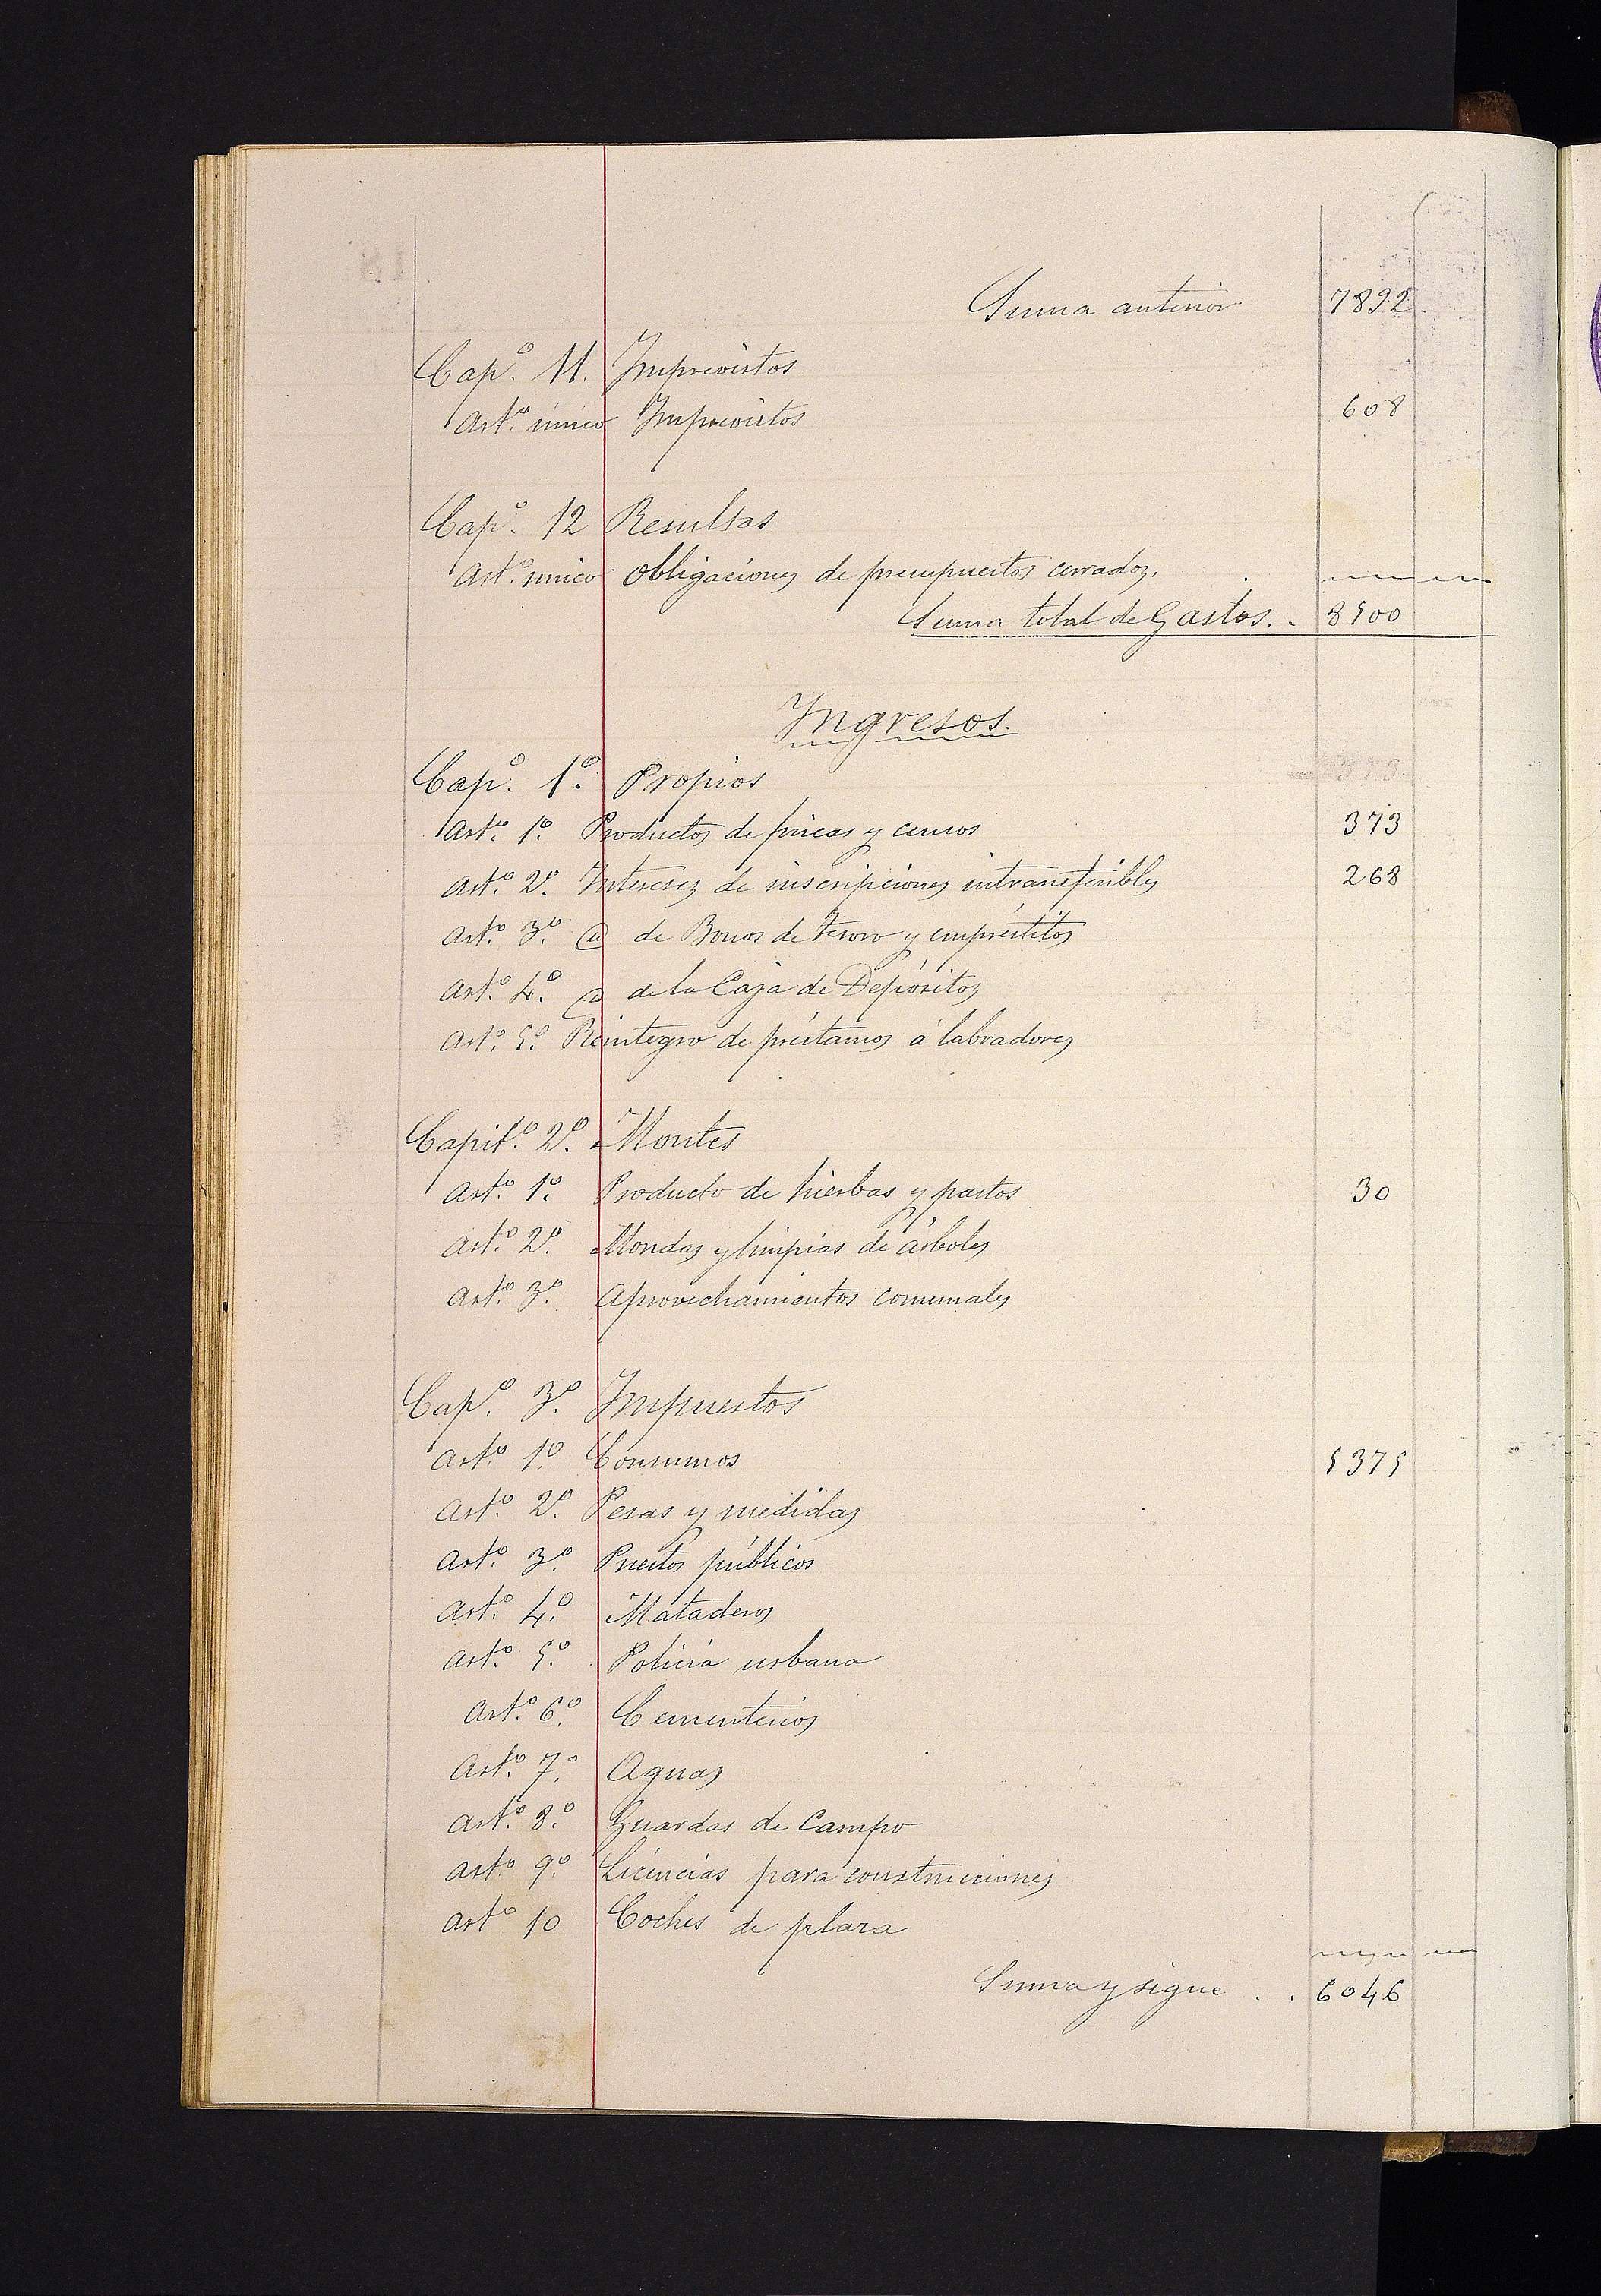 Suma anterior 7892
Cap.º 11. Imprevistos
Art.º único Imprevistos 608
Cap.º 12 Resultas
Art.º único Obligaciones de presupuestos cerrados.
Suma total de Gastos. . 8500
Ingresos.
Cap.º 1.º Propios
Art.º 1.º Productos de fincas y censos 373
Art.º 2.º Intereses de inscripciones intransferibles 268
Art.º 3.º de Bonos de Tesoro y empréstitos
Art.º 4.º de la Caja de Depósitos
Art.º 5.º Reintegro de préstamos á labradores
Capit.º 2.º Montes
Art.º 1.º Producto de hierbas y pastos 30
Art.º 2.º Mondas y limpias de árboles
Art.º 3.º Aprovechamientos comunales
Cap.º 3.º Impuestos
Art.º 1.º Consumos 5375
Art.º 2.º Pesas y medidas
Art.º 3.º Puestos públicos
Art.º 4.º Mataderos
Art.º 5.º Policía urbana
Art.º 6.º Cementerios
Art.º 7.º Aguas
Art.º 8.º Guardas de Campo
Artº 9.º Licencias para construcciones
Artº 10 Coches de plaza
Suma y sigue . . 6046